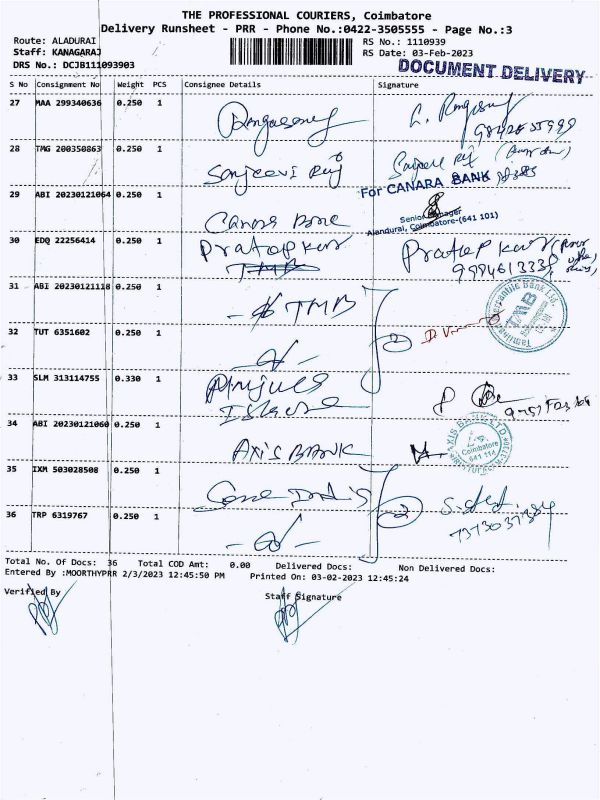 THE PROFESSIONAL COURIERS, Coimbatore
Delivery Runsheet - PRR - Phone No.:0422-3505555 - Page No.:3
Route: ALADURAI
RS No.: 1110939
Staff: KANAGARAJ
RS Date: 03-Feb-2023
DRS No.: DCJB111093903
DOCUMENT DELIVERY
S No Consignment No Weight PCS Consignee Details Signature
27 MAA 299340636 0.250 1
28 TMG 200350863 0.250 1
Sanjeevi Raj
For CANARA BANK
29 ABI 20230121064 0.250 1
Canara
Senior Manager
Alandurai, Coimbatore-(641 101)
30 EDQ 22256414 0.250 1
Pratap kur
TMB
31 ABI 20230121118 0.250 1
TMB
Tamilnad Mercantile Bank Ltd.
TMB
32 TUT 6351602 0.250 1
33 SLM 313114755 0.330 1
34 ABI 20230121060 0.250 1
AXIS BANK
AXIS BANK LTD
Coimbatore
641 114
35 IXM 503028508 0.250 1
36 TRP 6319767 0.250 1
Total No. Of Docs: 36 Total COD Amt: 0.00 Delivered Docs: Non Delivered Docs:
Entered By :MOORTHYPRR 2/3/2023 12:45:50 PM Printed On: 03-02-2023 12:45:24
Verified By Staff Signature